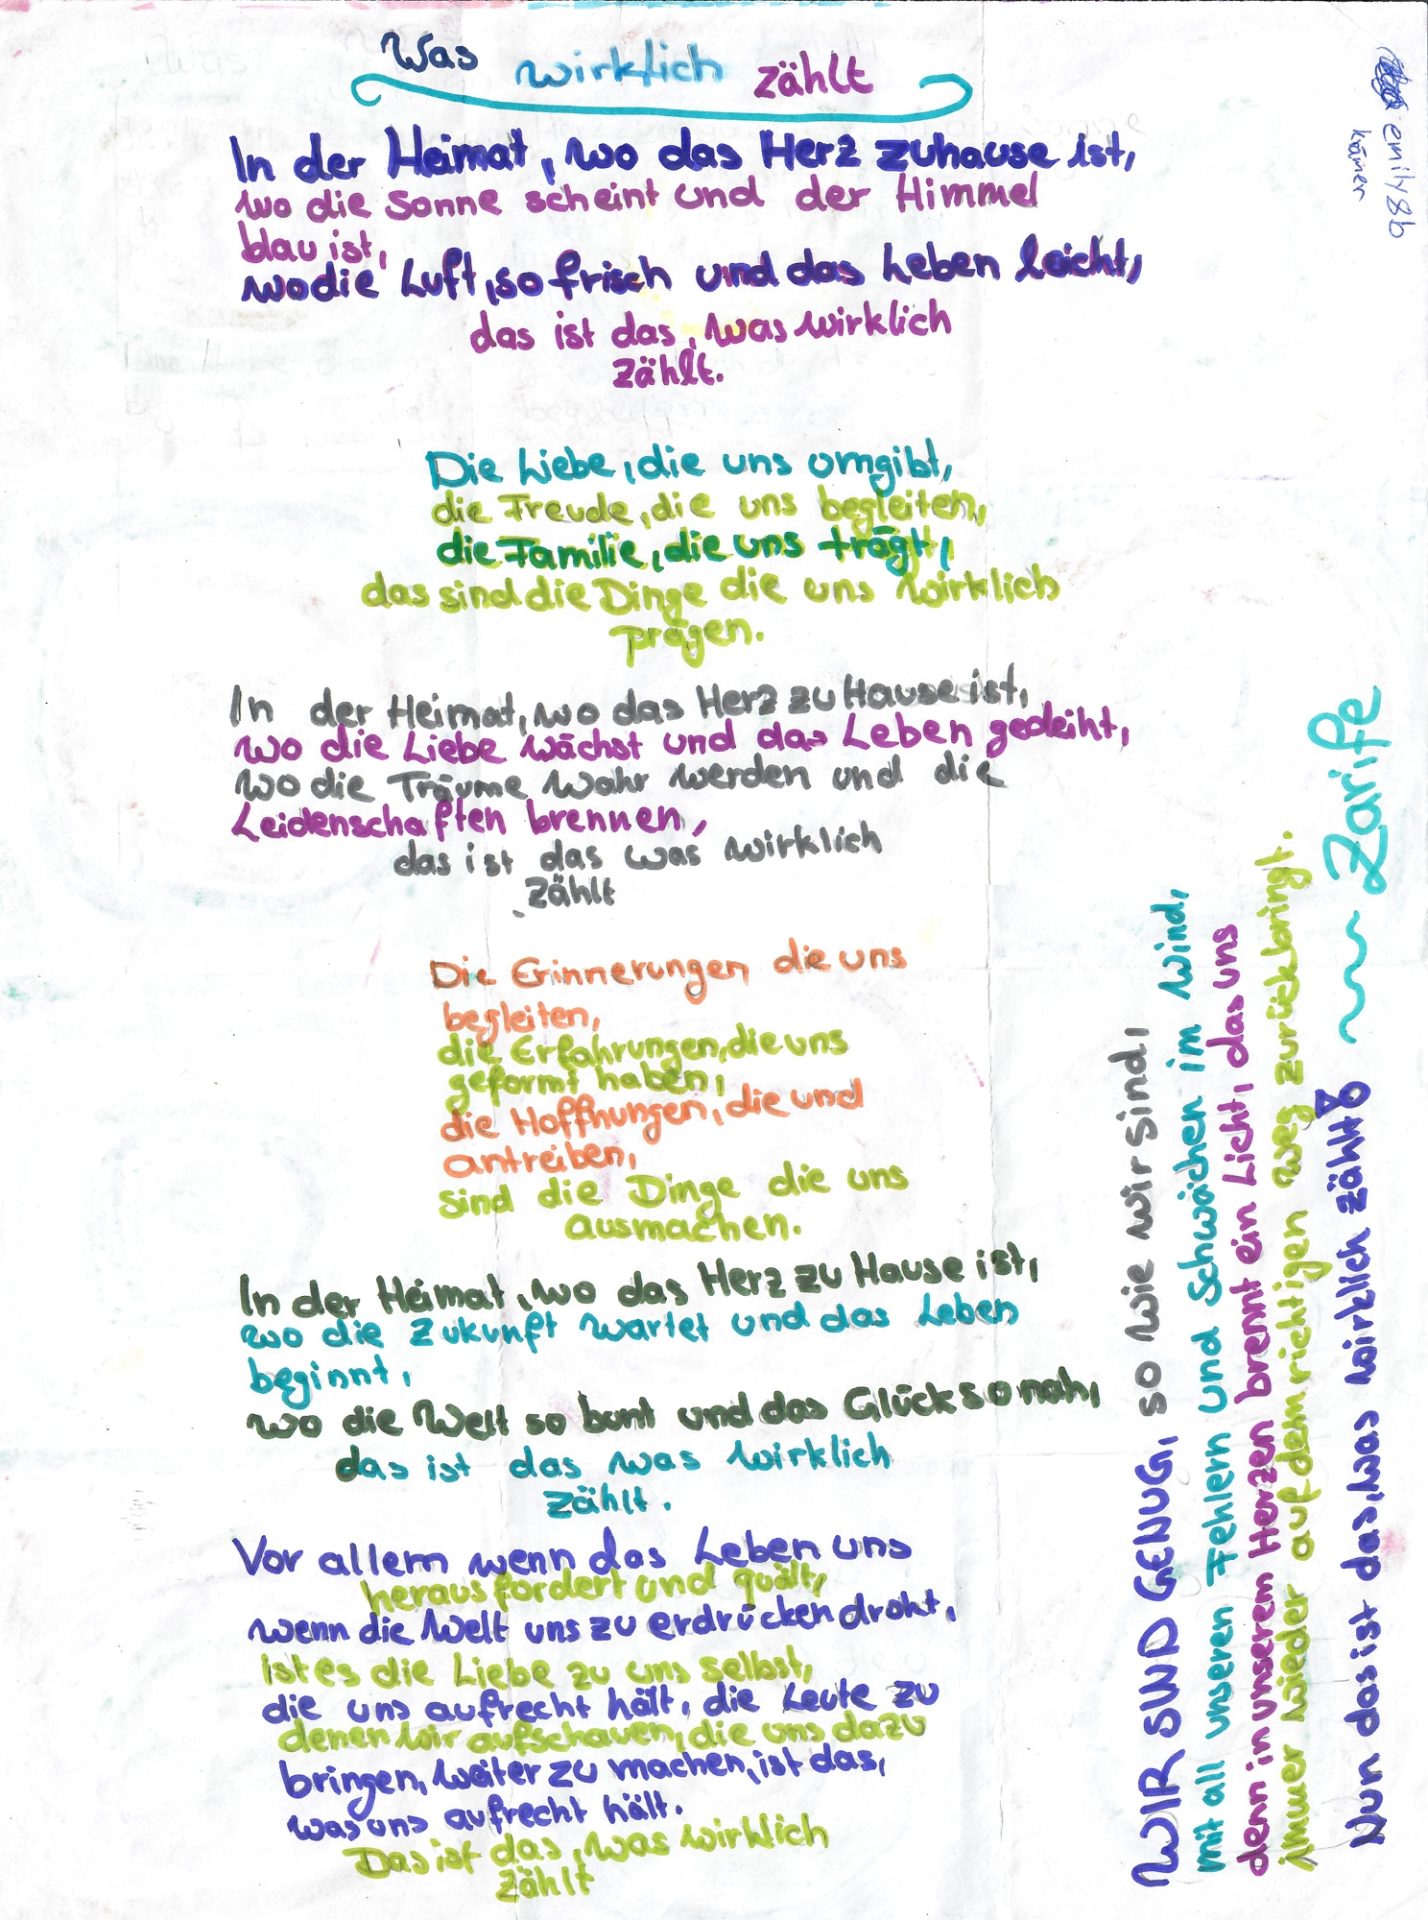 Was wirklich zählt
In der Heimat, wo das Herz zuhause ist,
wo die Sonne scheint und der Himmel
blau ist,
wo die Luft, so frisch und das Leben leicht,
das ist das, was wirklich
zählt.
Die Liebe, die uns umgibt,
die Freude, die uns begleiten,
die Familie, die uns trägt,
das sind die Dinge die uns wirklich
prägen.
In der Heimat, wo das Herz zu Hause ist,
wo die Liebe wächst und das Leben gedeiht,
wo die Träume wahr werden und die
Leidenschaften brennen,
das ist das was wirklich
zählt
Die Erinnerungen die uns
begleiten,
die Erfahrungen, die uns
geformt haben,
die Hoffnungen, die und
antreiben,
sind die Dinge die uns
ausmachen.
In der Heimat, wo das Herz zu Hause ist,
wo die Zukunft wartet und das Leben
beginnt,
wo die Welt so bunt und das Glück so nah,
das ist das was wirklich
zählt.
Vor allem wenn das Leben uns
herausfordert und quält,
wenn die Welt uns zu erdrücken droht,
ist es die Liebe zu uns selbst,
die uns aufrecht hält, die Leute zu
denen wir aufschauen, die uns dazu
bringen, weiter zu machen, ist das,
was uns aufrecht hält.
Das ist das, was wirklich
zählt
WIR SIND GENUG, so wie wir sind,
mit all unseren Fehlern und Schwächen im Wind,
denn in unserem Herzen brennt ein Licht, das uns
immer wieder auf dem richtigen weg zurückbringt.
Nun das ist das, was wirklich zählt
Zarife
emily 8b